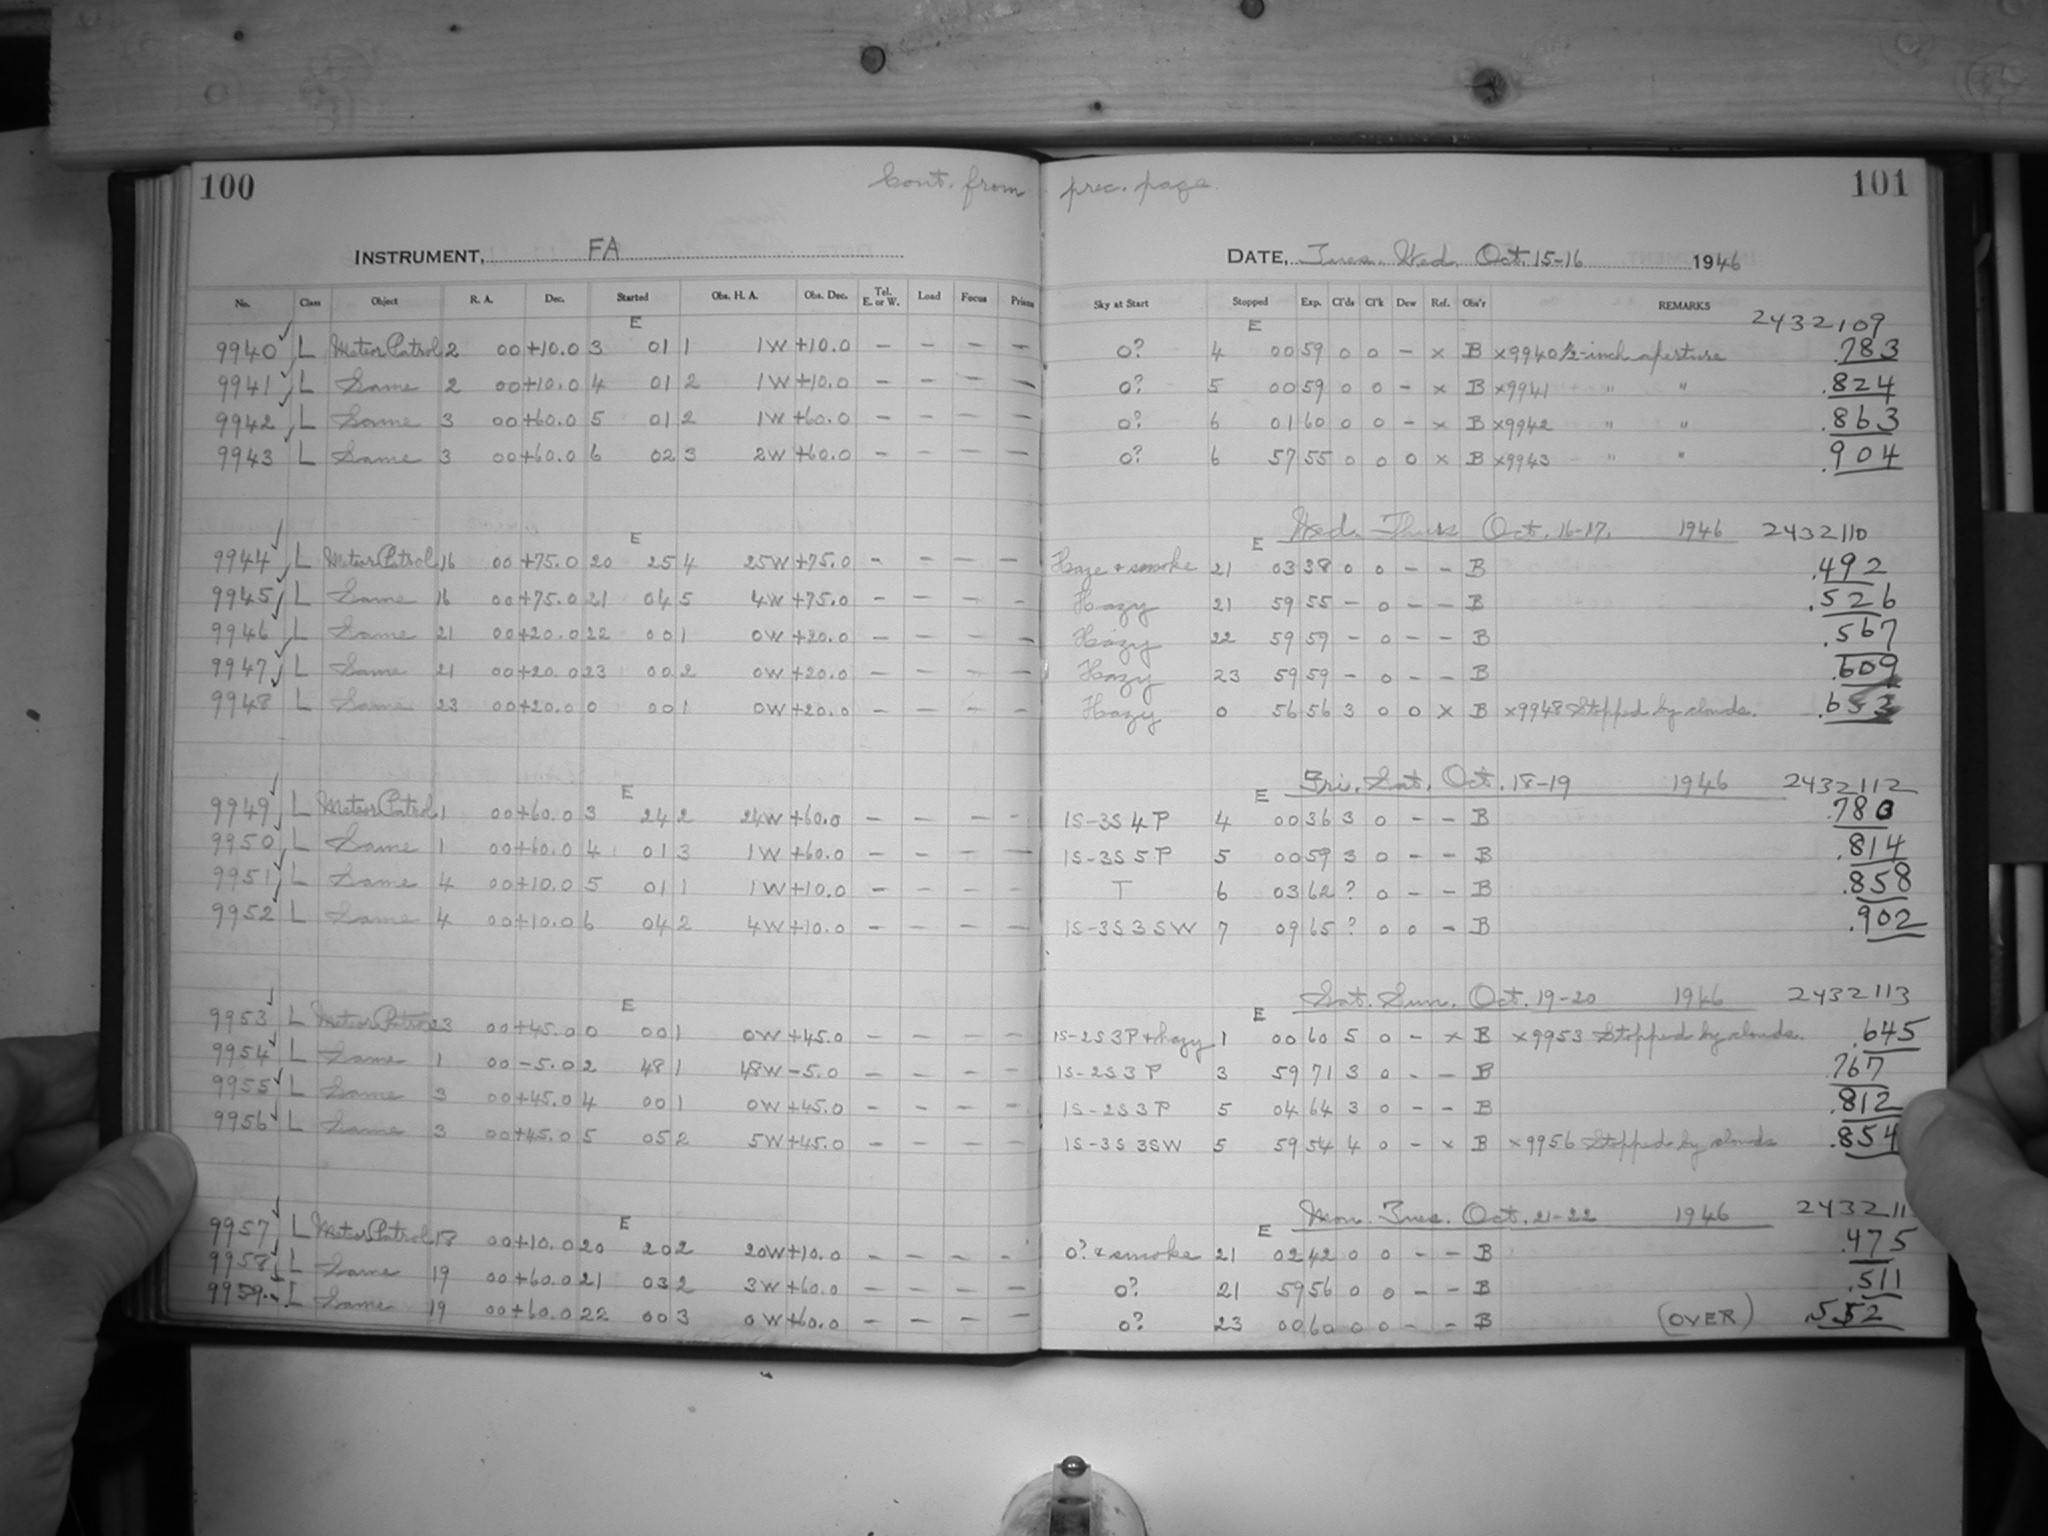 100 Cont. from prec. page. 101
INSTRUMENT, FA DATE, Tues. Wed. Oct. 15-16 1946
No. Class Object R. A. Dec. Started Obs. H. A. Obs. Dec. Tel. E. or W. Load Focus Prisms Sky at Start Stopped Exp. Cl'ds Cl'k Dew Ref. Obs'r REMARKS
E E 2432109
9940 L Meteor Patrol 2 00 +10.0 3 01 1 1W +10.0 - - - - 0? 4 00 59 0 0 - x B x9940 ½-inch aperture .783
9941 L Same 2 00 +10.0 4 01 2 1W +10.0 - - - - 0? 5 00 59 0 0 - x B x9941 " " .824
9942 L Same 3 00 +60.0 5 01 2 1W +60.0 - - - - 0? 6 01 60 0 0 - x B x9942 " " .863
9943 L Same 3 00 +60.0 6 02 3 2W +60.0 - - - - 0? 6 57 55 0 0 0 x B x9943 " " .904
E E Wed. Thurs Oct. 16-17. 1946 2432110
9944 L Meteor Patrol 16 00 +75.0 20 25 4 25W +75.0 - - - - Haze + smoke 21 03 38 0 0 - - B .492
9945 L Same 16 00 +75.0 21 04 5 4W +75.0 - - - - Hazy 21 59 55 - 0 - - B .526
9946 L Same 21 00 +20.0 22 00 1 0W +20.0 - - - - Hazy 22 59 59 - 0 - - B .567
9947 L Same 21 00 +20.0 23 00 2 0W +20.0 - - - - Hazy 23 59 59 - 0 - - B .609
9948 L Same 23 00 +20.0 0 00 1 0W +20.0 - - - - Hazy 0 56 56 3 0 0 x B x9948 Stopped by clouds. .653
E E Fri. Sat. Oct. 18-19 1946 2432112
9949 L Meteor Patrol 1 00 +60.0 3 24 2 24W +60.0 - - - - 1S-3S 4 P 4 00 36 3 0 - - B .780
9950 L Same 1 00 +60.0 4 01 3 1W +60.0 - - - - 1S-3S 5 P 5 00 59 3 0 - - B .814
9951 L Same 4 00 +10.0 5 01 1 1W +10.0 - - - - T 6 03 62 ? 0 - - B .858
9952 L Same 4 00 +10.0 6 04 2 4W +10.0 - - - - 1S-3S 3 SW 7 09 65 ? 0 0 - B .902
E E Sat. Sun. Oct. 19-20 1946 2432113
9953 L Meteor Patrol 23 00 +45.0 0 00 1 0W +45.0 - - - - 1S-2S 3P + hazy 1 00 60 5 0 - x B x9953 Stopped by clouds. .645
9954 L Same 1 00 -5.0 2 48 1 48W -5.0 - - - - 1S-2S 3 P 3 59 71 3 0 - - B .767
9955 L Same 3 00 +45.0 4 00 1 0W +45.0 - - - - 1S-2S 3 P 5 04 64 3 0 - - B .812
9956 L Same 3 00 +45.0 5 05 2 5W +45.0 - - - - 1S-3S 3SW 5 59 54 4 0 - x B x9956 Stopped by clouds .854
E E Mon. Tues. Oct. 21-22 1946 243211
9957 L Meteor Patrol 18 00 +10.0 20 20 2 20W +10.0 - - - - 0? + smoke 21 02 42 0 0 - - B .475
9958 L Same 19 00 +60.0 21 03 2 3W +60.0 - - - - 0? 21 59 56 0 0 - - B .511
9959 L Same 19 00 +60.0 22 00 3 0W +60.0 - - - - 0? 23 00 60 0 0 - - B (OVER) .552